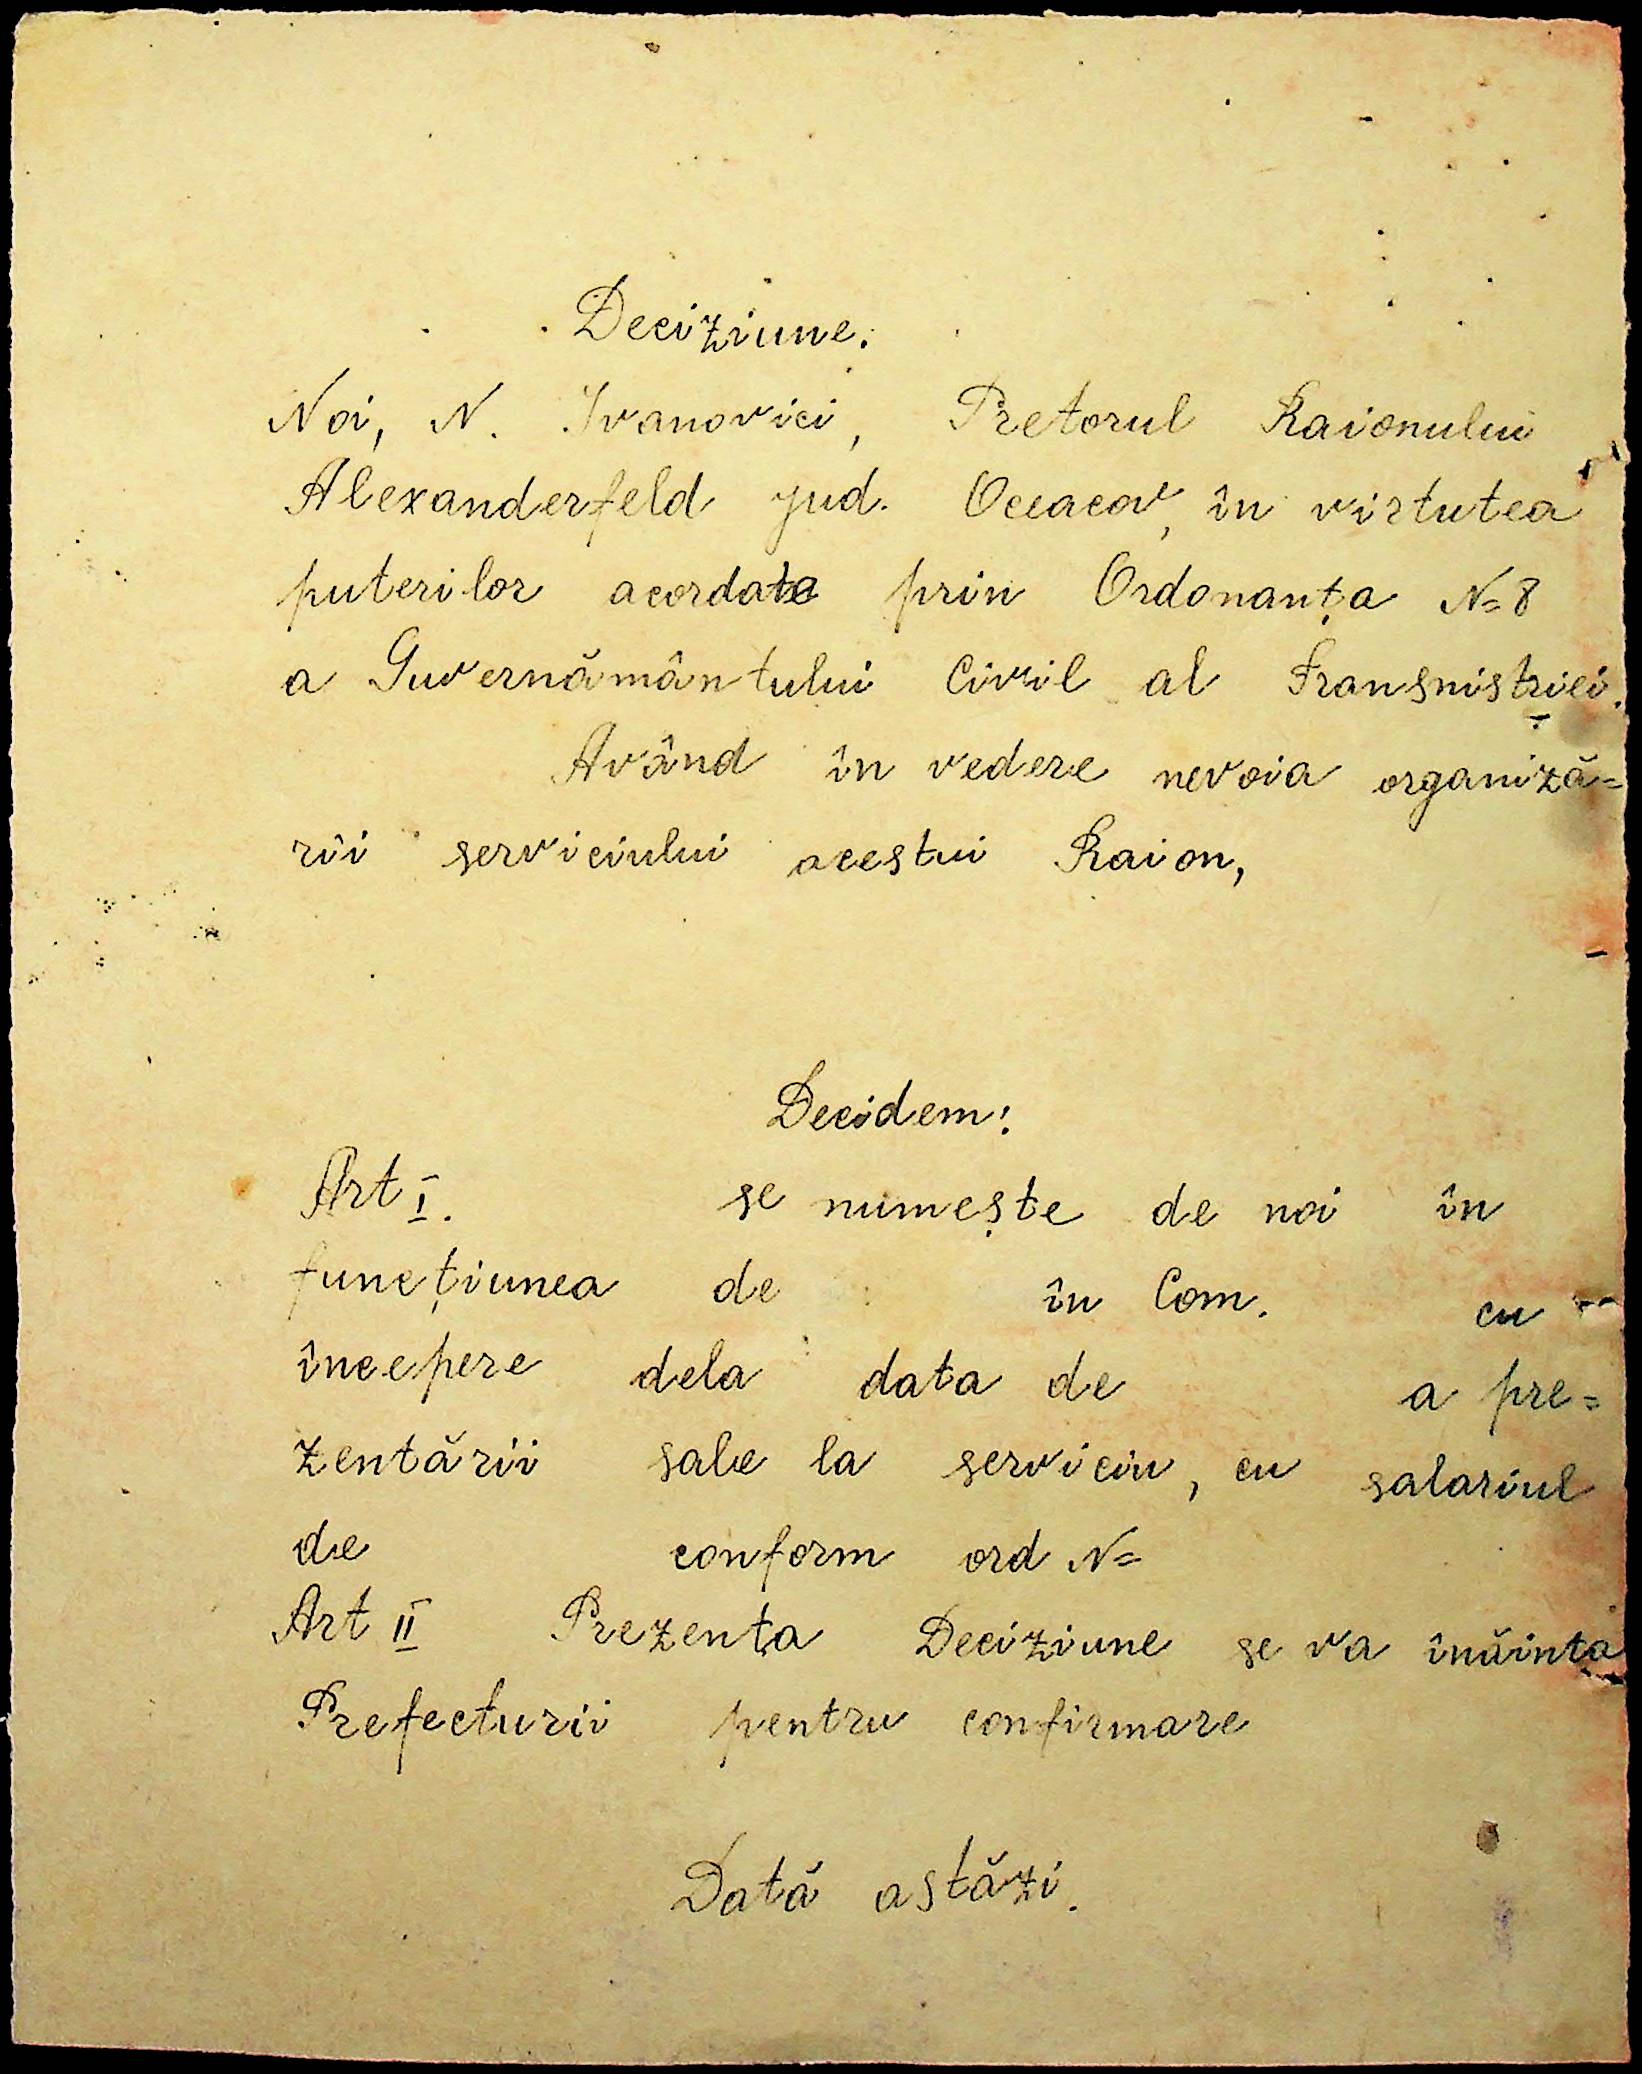 Deciziune.
Noi, N. Ivanovici, Pretorul Raionului
Alexanderfeld jud. Oceacov, în virtutea
puterilor acordate prin Ordonanța N=8
a Guvernământului Civil al Transnistriei.
Având în vedere nevoia organiză=
rii serviciului acestui Raion,
Decidem:
Art I. se numește de noi în
funcțiunea de în Com. cu
începere dela data de a pre=
zentării sale la serviciu, cu salariul
de conform ord N=
Art II Prezenta Deciziune se va înăinta
Prefecturii pentru confirmare
Dată astăzi.